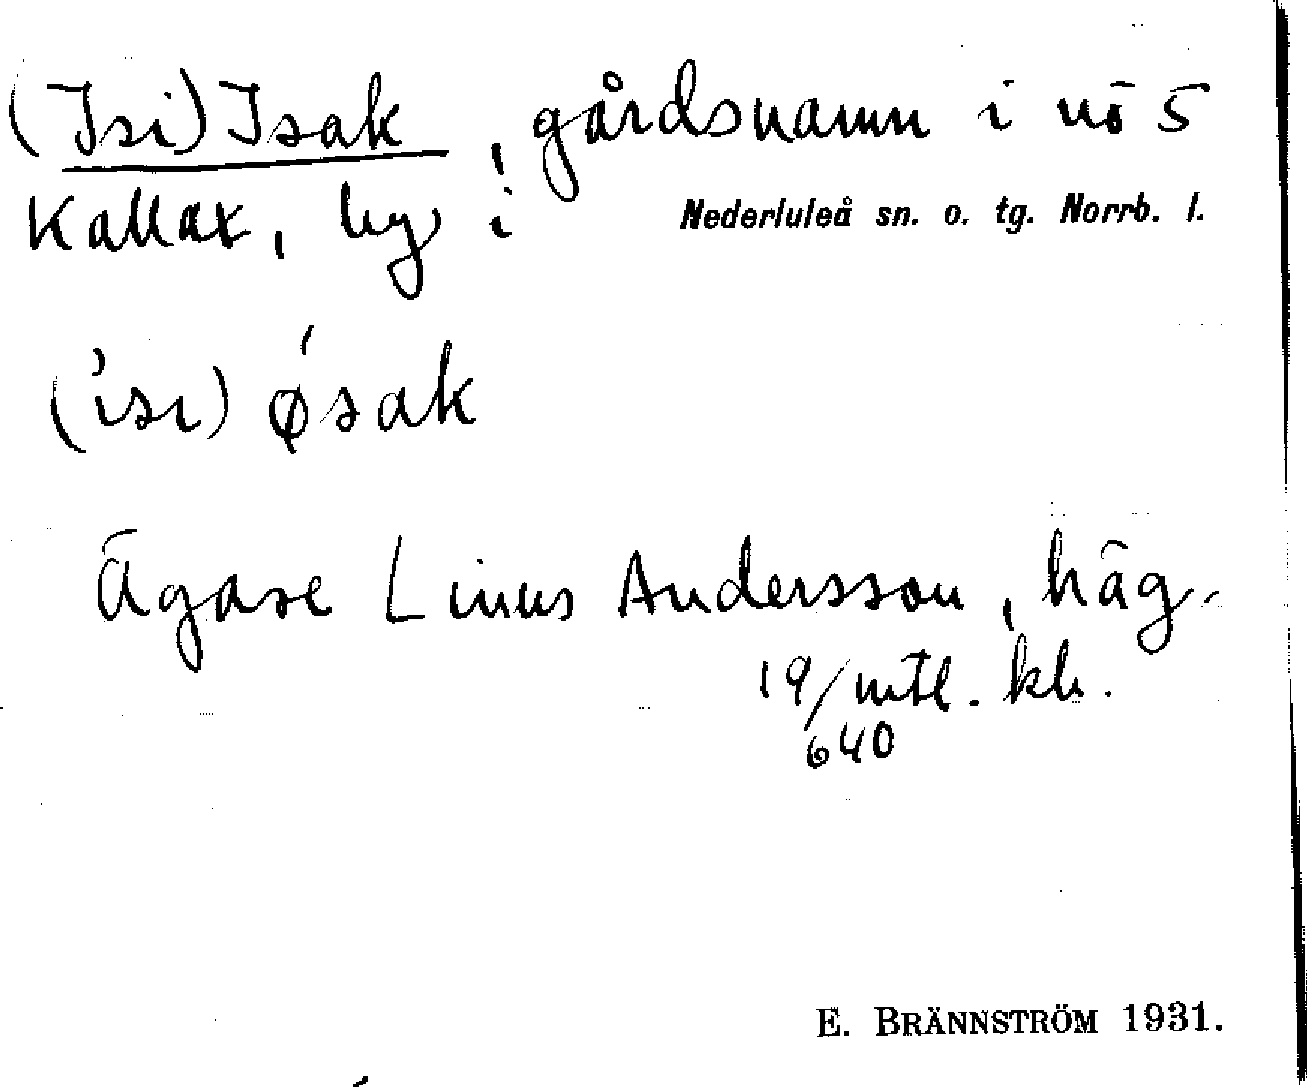 (Isi) Isak, gårdsnamn i nō 5
Kallax, by i Nederluleå sn. o. tg. Norrb. l.
(ísi) ǿsak
Ägare Linus Andersson, häg.
19/640 mtl. kh.
E. BRÄNNSTRÖM 1931.